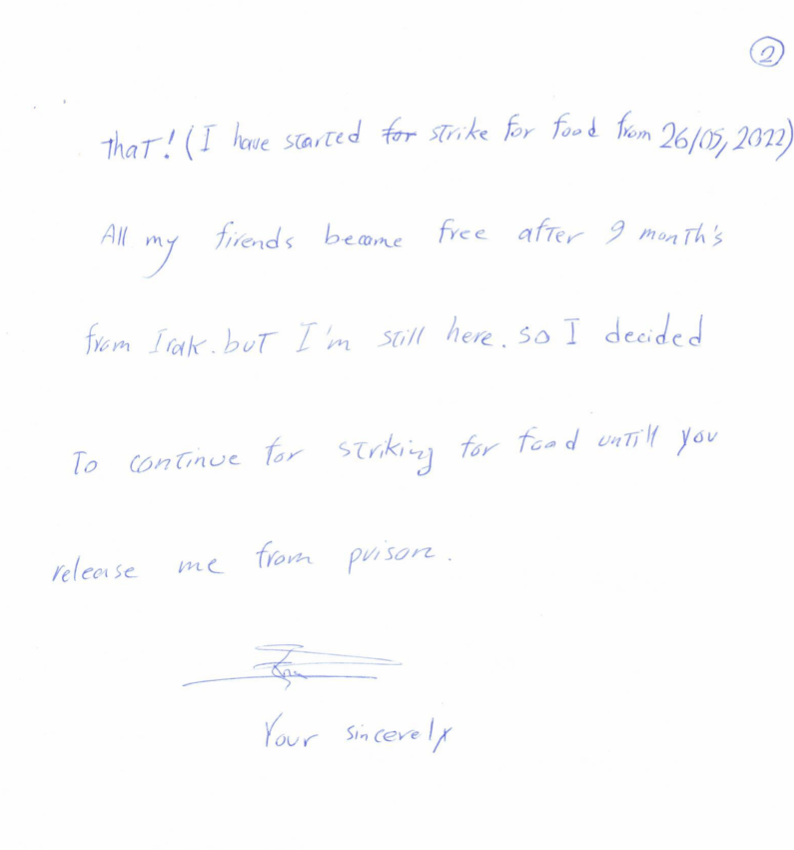 2
that! (I have started for strike for food from 26/05, 2022)
All my firends become free after 9 month's
from Irak. but I'm still here. so I decided
To continue for striking for food untill you
release me from prison.
Your sincerely